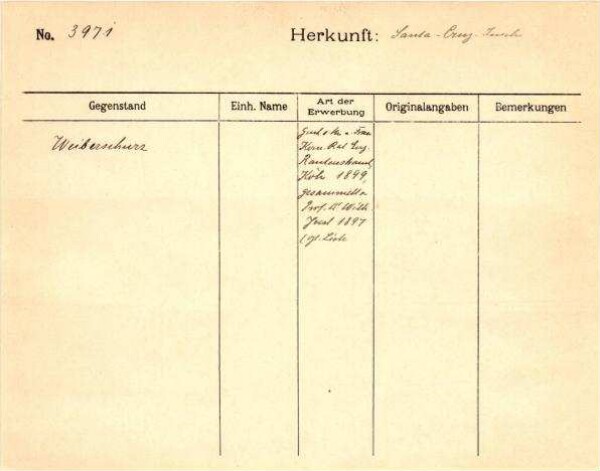 No. 3971 Herkunft: Santa-Cruz-Inseln
Gegenstand Einh. Name Art der Erwerbung Originalangaben Bemerkungen
Weiberschurz
Frau
Kom. Rat Eug.
Rautenstrauch,
Köln 1899,
gesammelt v.
Prof. Dr. Wilh.
Joest 1897
Liste